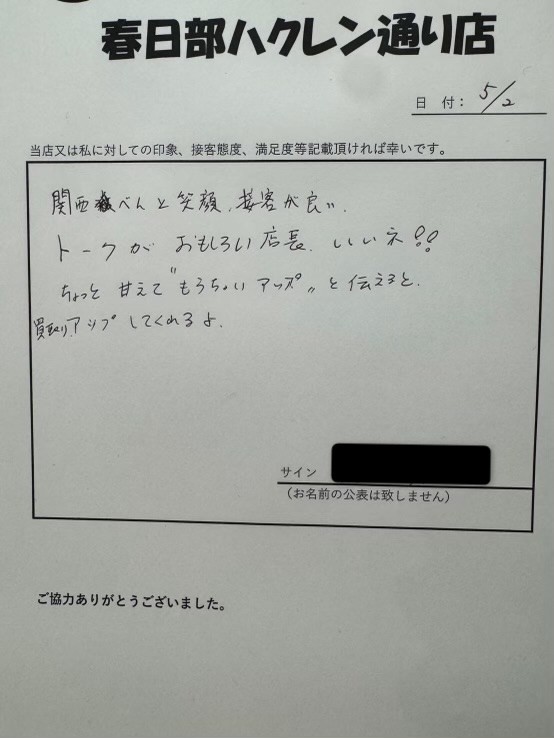 春日部ハクレン通り店
日 付： 5/2
当店又は私に対しての印象、接客態度、満足度等記載頂ければ幸いです。
関西べんと笑顔、接客が良い、
トークがおもしろい店長、いいネ!!
ちょっと甘えて"もうちょいアップ"と伝えると、
買取りアップしてくれるよ、
サイン
（お名前の公表は致しません）
ご協力ありがとうございました。